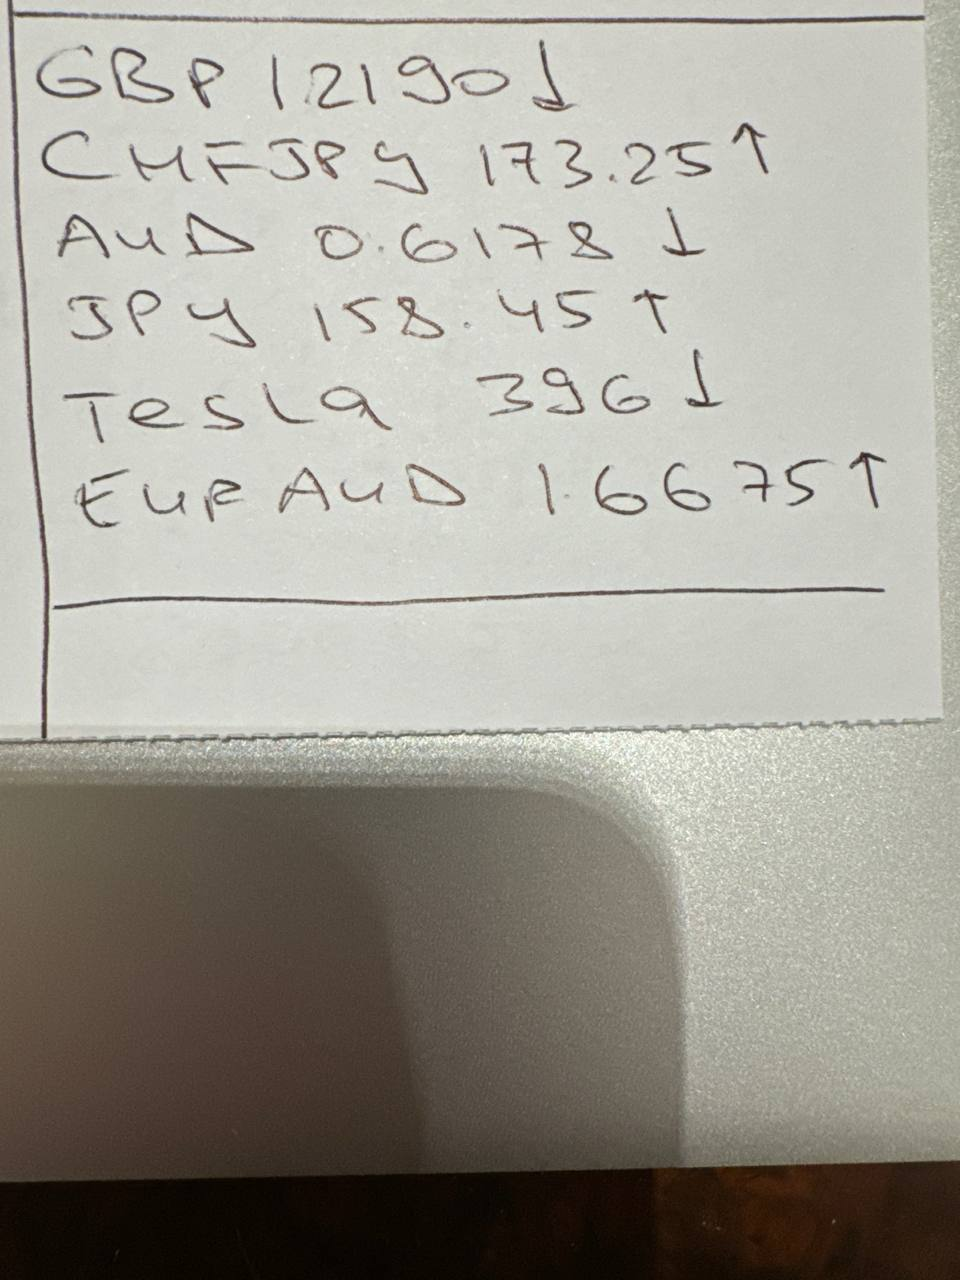 GBP 12190↓
CHFJPY 173.25↑
AUD 0.6178 ↓
JPY 158.45 ↑
Tesla 396↓
EUR AUD 1.6675↑